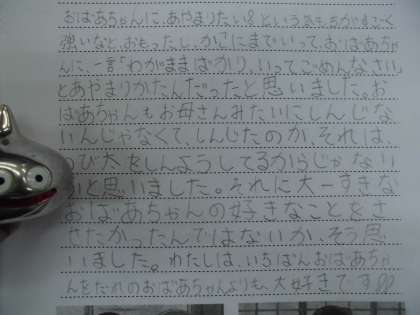 おばあちゃんに、あやまりたい。という気もちがすごく
強いなと、おもったし、かさにまでいって、おばあちゃ
んに、一言「わがままばかり、いってごめんなさい」
とあやまりかたんだったと思いました。お
ばあちゃんもお母さんみたいにしんじな
いんじゃなくて、しんじたのか、それは、
び犬をしんようしてるからじゃない
と思いました。それに大一すきな
おばあちゃんの好きなことをさ
せたかったんではないか、そう思
いました。わたしは、いちばんおばあちゃ
んをだれのおばあちゃんよりも、大好きです